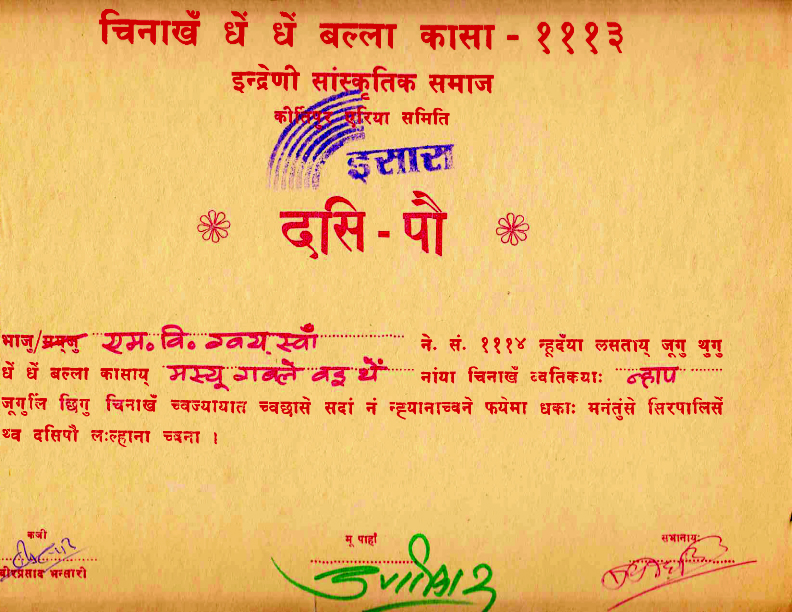 चिनाखँ धें धें बल्ला कासा - १११३
इन्द्रेणी सांस्कृतिक समाज
कीर्तिपुर एरिया समिति
इसास
दसि - पौ
भाजु/मय्‌जु एम. वि. ग्वय् स्वाँ ने. सं. १११४ न्हूदँया लसताय् जूगु थुगु
धें धें बल्ला कासाय् मस्यू गबले वइ थें नांया चिनाखँ ब्वतिकयाः न्हाप
जूगुलिं छिगु चिनाखँ च्वज्यायात च्वछासे सदां नं न्ह्यानाच्वने फयेमा धकाः मनंतुंसे सिरपालिसें
थ्व दसिपौ लःल्हाना च्वना ।
कजी मू पाहाँ सभानायः
भन्सारी